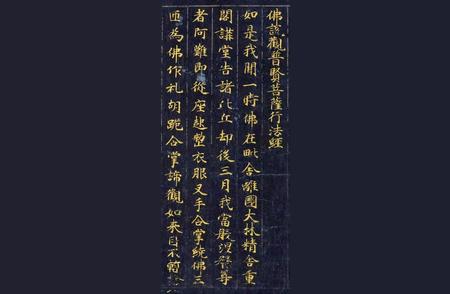 佛説觀普賢菩薩行法經
如是我聞一時佛在毗舍離國大林精舍重
閣講堂告諸比丘却後三月我當般涅槃尊
者阿難即從座起整衣服叉手合掌繞佛三
匝為佛作礼胡跪合掌諦觀如来目不暫